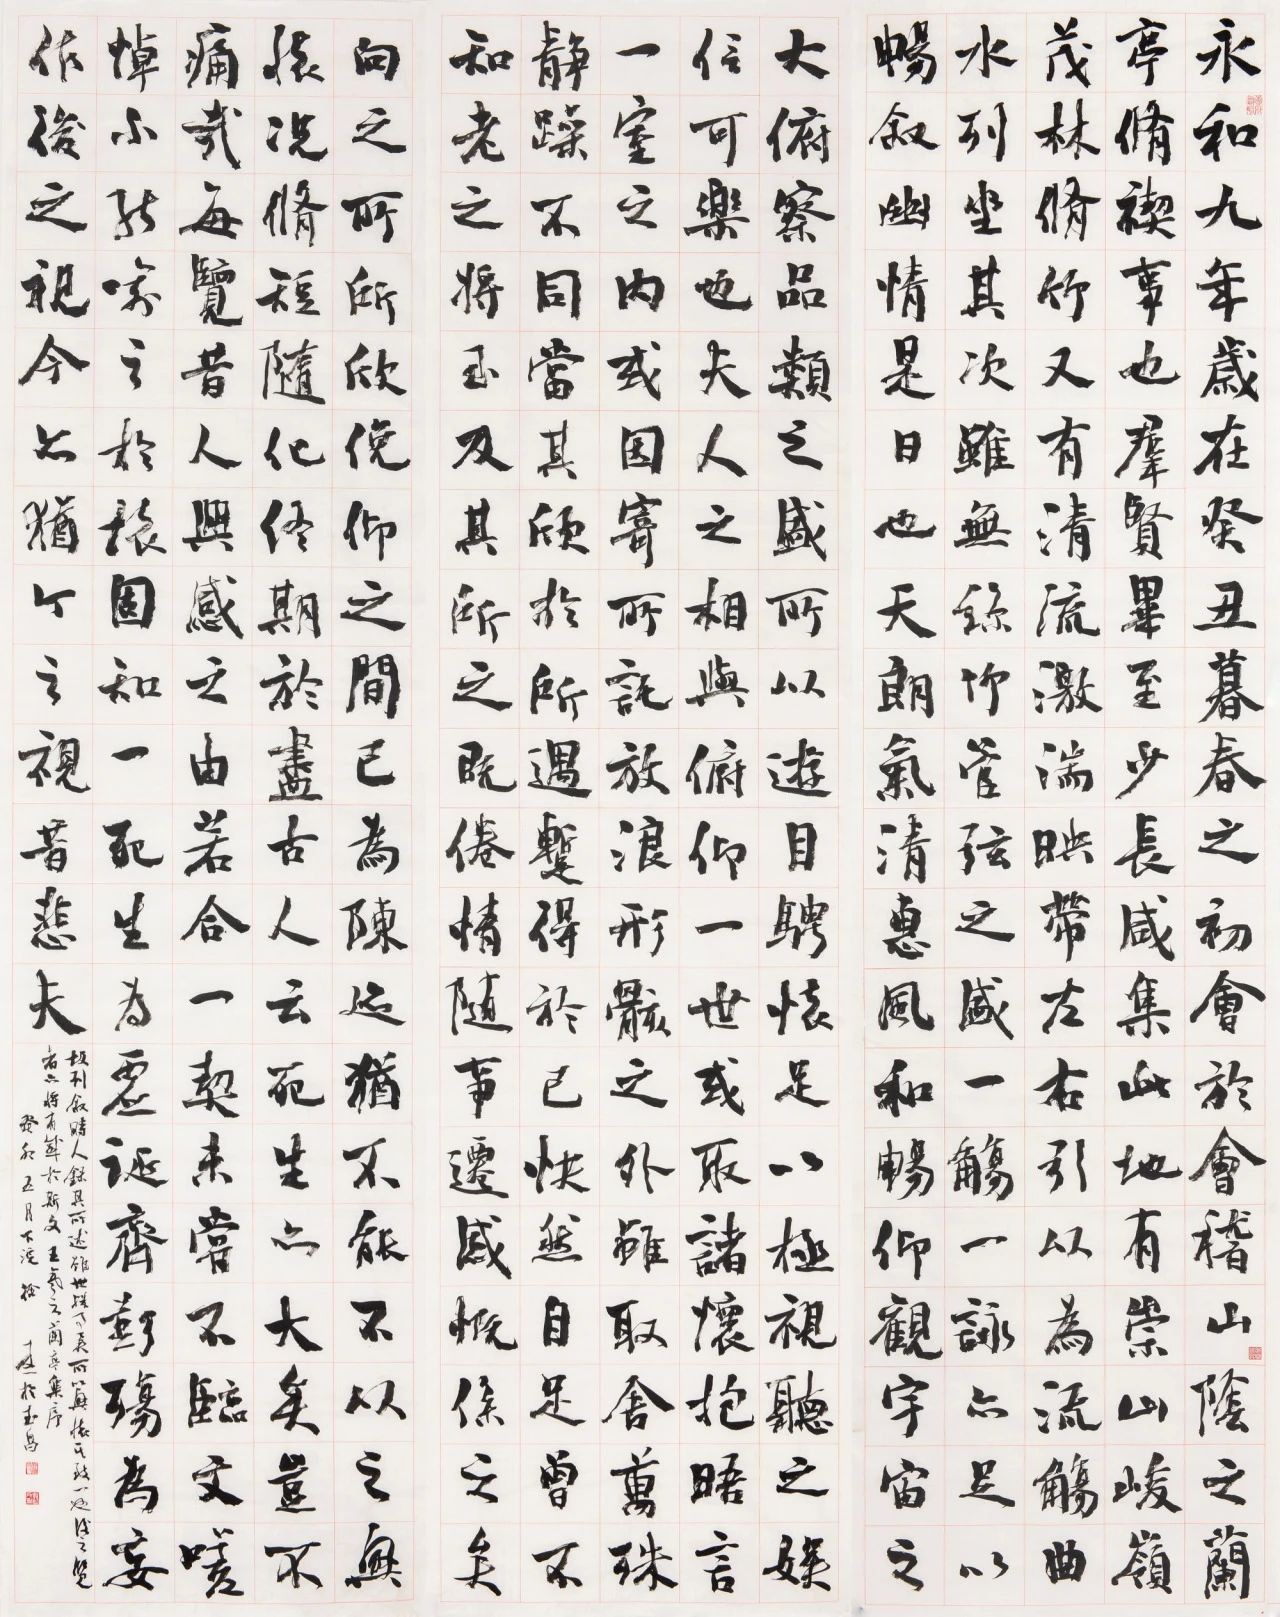 永和九年歲在癸丑暮春之初會於會稽山陰之蘭
亭脩禊事也羣賢畢至少長咸集此地有崇山峻嶺
茂林脩竹又有清流激湍映帶左右引以為流觴曲
水列坐其次雖無絲竹管弦之盛一觴一詠亦足以
暢敘幽情是日也天朗氣清惠風和暢仰觀宇宙之
大俯察品類之盛所以遊目騁懷足以極視聽之娛
信可樂也夫人之相與俯仰一世或取諸懷抱晤言
一室之內或因寄所託放浪形骸之外雖取舍萬殊
靜躁不同當其欣於所遇蹔得於己快然自足曾不
知老之將至及其所之既倦情隨事遷感慨係之矣
向之所所欣俛仰之間已為陳迹猶不能不以之興
懷況脩短隨化終期於盡古人云死生亦大矣豈不
痛哉每覽昔人興感之由若合一契未嘗不臨文嗟
悼不能喻之於懷固知一死生為虛誕齊彭殤為妄
作後之視今亦猶今之視昔悲夫
故列敘時人錄其所述雖世殊事異所以興懷其致一也後之覽
者亦將有感於斯文 王羲之蘭亭集序
癸卯五月下浣